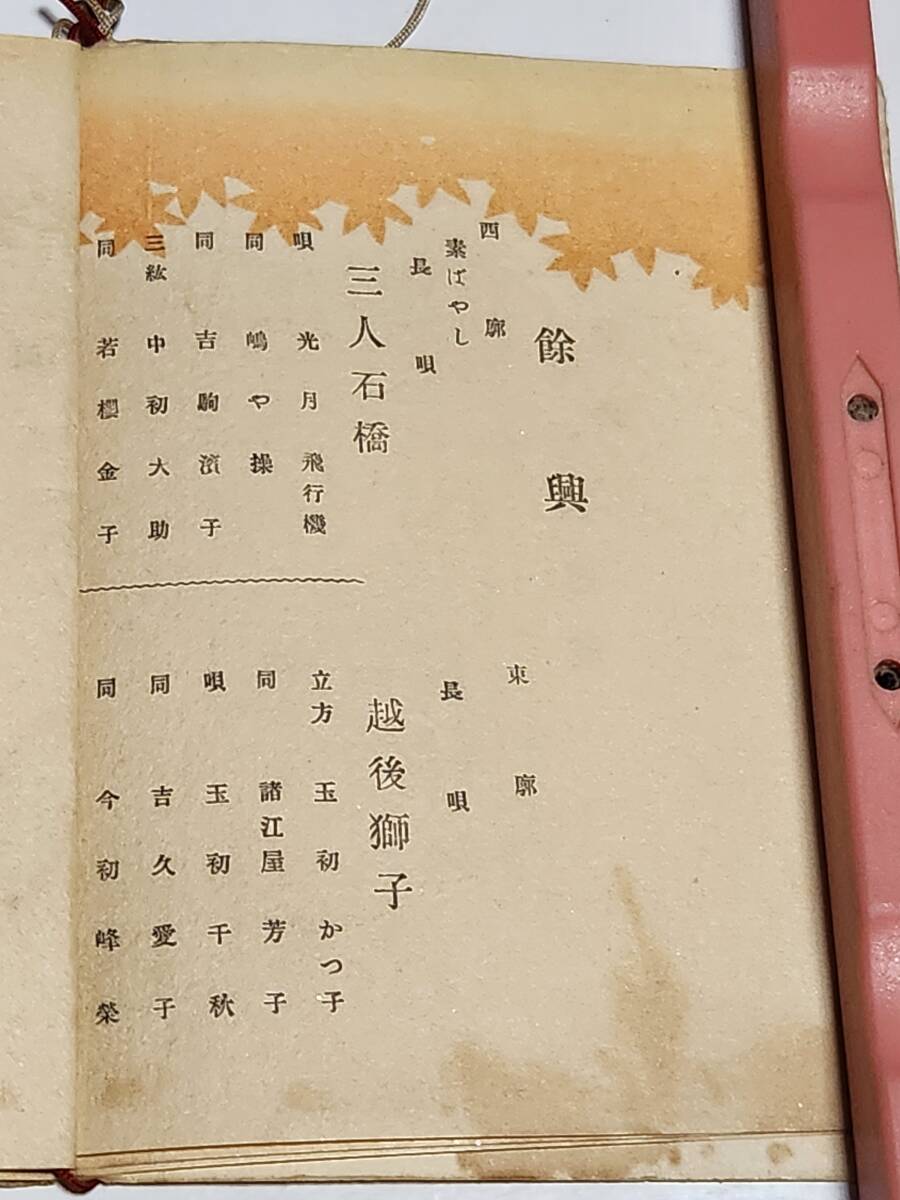 餘興
西廓
素ばやし
長唄
三人石橋
唄 光月飛行機
同 嶋や操
同 吉駒濱子
三絃 中初大助
同 若櫻金子
東廓
長唄
越後獅子
立方 玉初かつ子
同 諸江屋芳子
唄 玉初千秋
同 吉久愛子
同 今初峰榮